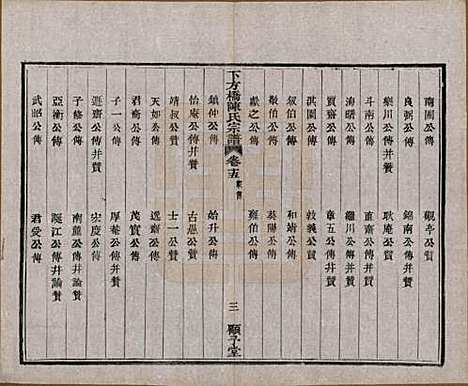 南園公傳　觀亭公贊
良弼公傳　錦南公傳并贊
樂川公傳并贊　耿庵公贊
斗南公傳　直齋公傳并贊
海曙公傳　繼川公傳
賓齋公傳　章五公傳并贊
淇園公傳　敦義公傳
叔伯公傳　和靖公傳
敬伯公傳　葵陽公傳
獻之公傳　雍伯公傳
下方橋陳氏宗譜　卷十五　家傳　三　顯子堂
鎮仲公傳　始升公傳
怡庵公傳并贊　古愚公傳
靖叔公傳　士一公贊
天如公傳　逸齋公傳
君衡公傳　茂實公傳
子一公傳　厚菴公傳并贊
遜齋公傳并贊　宏度公傳
子修公傳　南麓公傳并論贊
亞衡公傳　誕江公傳并論贊
武昭公傳　君愛公傳